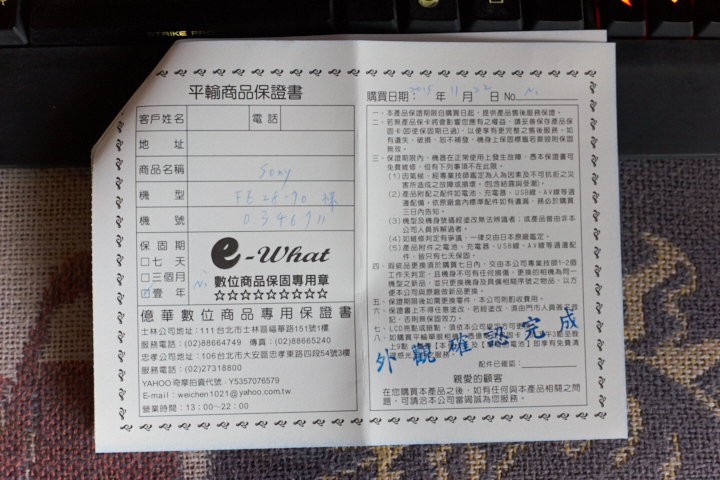 STRIKE PRO
平輸商品保證書
客戶姓名 電話
地址
商品名稱 Sony
機型 FE 28-70 標
機號 0346711
保固期
□七天
□三個月 Ni
☑壹年
e-What
數位商品保固專用章
☆☆☆☆☆☆☆☆☆
億華數位商品專用保證書
士林公司地址:111台北市士林區福華路151號1樓
服務電話:(02)88664749 傳真:(02)88665240
忠孝公司地址:106台北市大安區忠孝東路四段54號3樓
服務電話:(02)27318800
YAHOO奇摩拍賣代號:Y5357076579
E-mail:weichen1021@yahoo.com.tw
營業時間:13:00~22:00
購買日期: 2015 年 11 月 22 日 No. Ni
一、本產品保證期限自購買日起,提供產品售後服務保證。
二、若無產品保卡將會影響您應有之權益,請妥善保存產品保
固卡(即使保固期已過),以便享有更完整之售後服務。如
有遺失、破損,恕不補發。機身上保固標籤若撕毀則保固
無效。
三、保證期限內,機器在正常使用上發生故障,憑本保證書可
免費維修,但有下列事項不在此限。
(1)因氣候、經專業技師鑑定為人為因素及不可抗拒之災
害所造成之故障或損壞。(包含結露與受潮)。
(2)產品附配之配件如電池、充電器、USB線、AV線等週
邊配備,依原廠盒內標準配件如有遺漏,務必於購買
三日內告知。
(3)機型及機身號碼經塗改無法辨識者;或產品曾由非本
公司人員拆解過者。
(4)如維修判定有爭議,一律交由日本原廠鑑定。
(5)產品附件之電池、充電器、USB線、AV線等週邊配
件,皆只有七天保固。
四、瑕疵品更換須於購買七日內,交由本公司專業技師1-2個
工作天判定,且機身不可有任何損傷,更換的相機為同一
機型之新品,並只更換機身及與價相關序號之物品,以方
便本公司與原廠做新品更換。
五、保證期限後如需更換零件,本公司則酌收費用。
六、保證書上不得任意塗改,若經塗改,須由門市人員簽名登
記,否則無保固效力。
七、LCD亮點或暗點,須依本公司
八、如購買平輸單眼相機
外觀確認完成
配件已確認:
親愛的顧客
在您購買本產品之後,如有任何與本產品相關之問
題,可請洽本公司當竭誠為您服務。